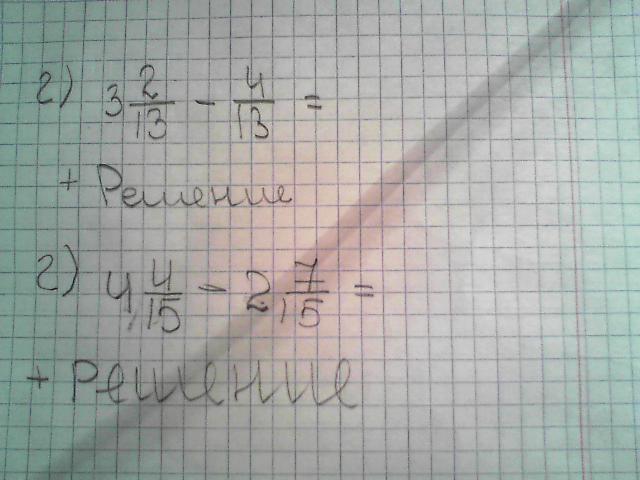 г) 3 2/13 - 4/13 =
+ Решение
г) 4 4/15 - 2 7/15 =
+ Решение